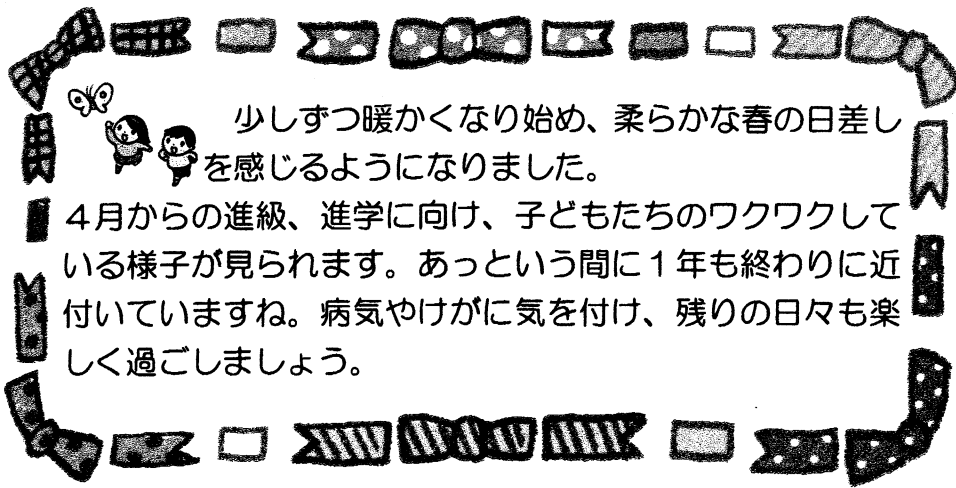 少しずつ暖かくなり始め、柔らかな春の日差し
を感じるようになりました。
４月からの進級、進学に向け、子どもたちのワクワクして
いる様子が見られます。あっという間に１年も終わりに近
付いていますね。病気やけがに気を付け、残りの日々も楽
しく過ごしましょう。